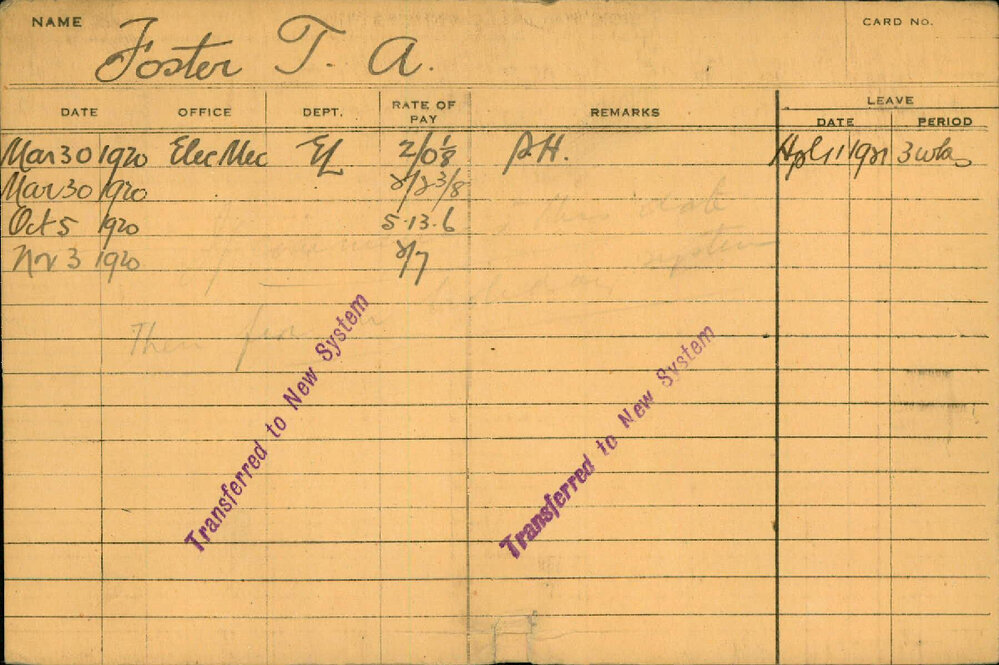 NAME Foster T. A. CARD NO.
DATE OFFICE DEPT. RATE OF PAY REMARKS LEAVE
DATE PERIOD
Mar 30 1920 Elec Mec EL 2/0⅛ P.H. Apl 1 1921 3 wks
Mar 30 1920 2/2 3/8
Oct 5 1920 5.13.6
Nov 3 1920 2/7
this date
system
Then
Transferred to New System
Transferred to New System